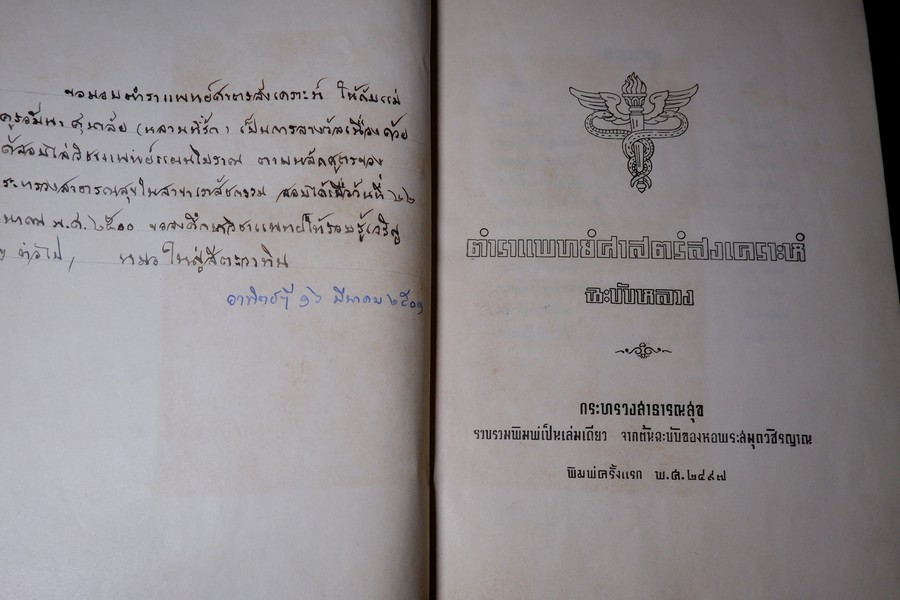 ขอมอบตำราแพทย์ศาสตร์สงเคราะห์ ให้กับแม่
(หลานที่รัก) เป็นการลางวัลเนื่องด้วย
ได้สอบไล่วิชาแพทย์แผนโบราณ ตามหลักสูตรของ
กระทรวงสาธารณสุขในสาขาเภสัชกรรม สอบได้เมื่อวันที่ ๒๒
พ.ศ. ๒๕๐๐ ขอจงศึกษาวิชาแพทย์ให้รอบรู้เจริญ
ต่อไป, หมอใหญ่สีตะวาทิน
อาทิตย์ที่ ๑๖ มีนาคม ๒๕๐๑
ตำราแพทย์ศาสตร์สงเคราะห์
ฉะบับหลวง
กระทรวงสาธารณสุข
รวบรวมพิมพ์เป็นเล่มเดียว จากต้นฉะบับของหอพระสมุดวชิรญาณ
พิมพ์ครั้งแรก พ.ศ. ๒๔๙๗